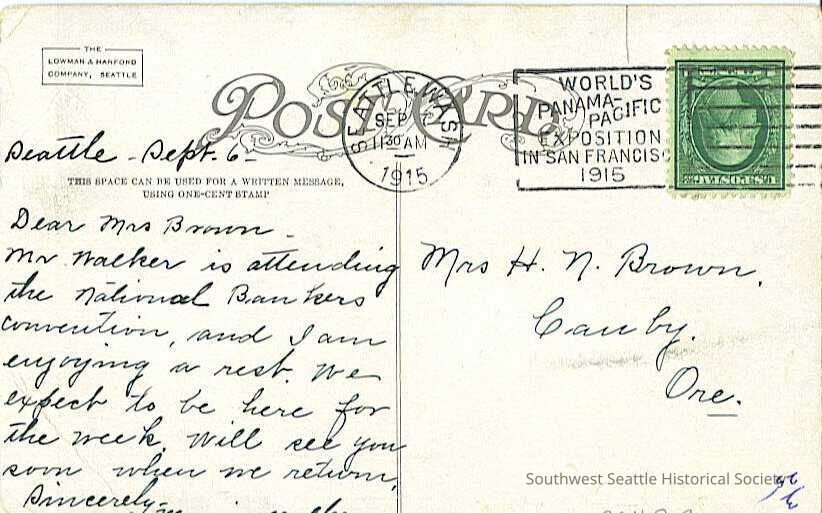 THE
LOWMAN & HANFORD
COMPANY, SEATTLE
POST CARD
SEATTLE, WASH.
SEP 7
11 30 AM
1915
WORLD'S
PANAMA-
PACIFIC
EXPOSITION
IN SAN FRANCISC
1915
Seattle - Sept. 6 -
THIS SPACE CAN BE USED FOR A WRITTEN MESSAGE,
USING ONE-CENT STAMP
Dear Mrs Brown -
Mr Walker is attending
the National Bankers
convention, and I am
enjoying a rest. We
expect to be here for
the week. Will see you
soon when we return.
Sincerely -
Mrs H. N. Brown.
Canby.
Ore.
Southwest Seattle Historical Society